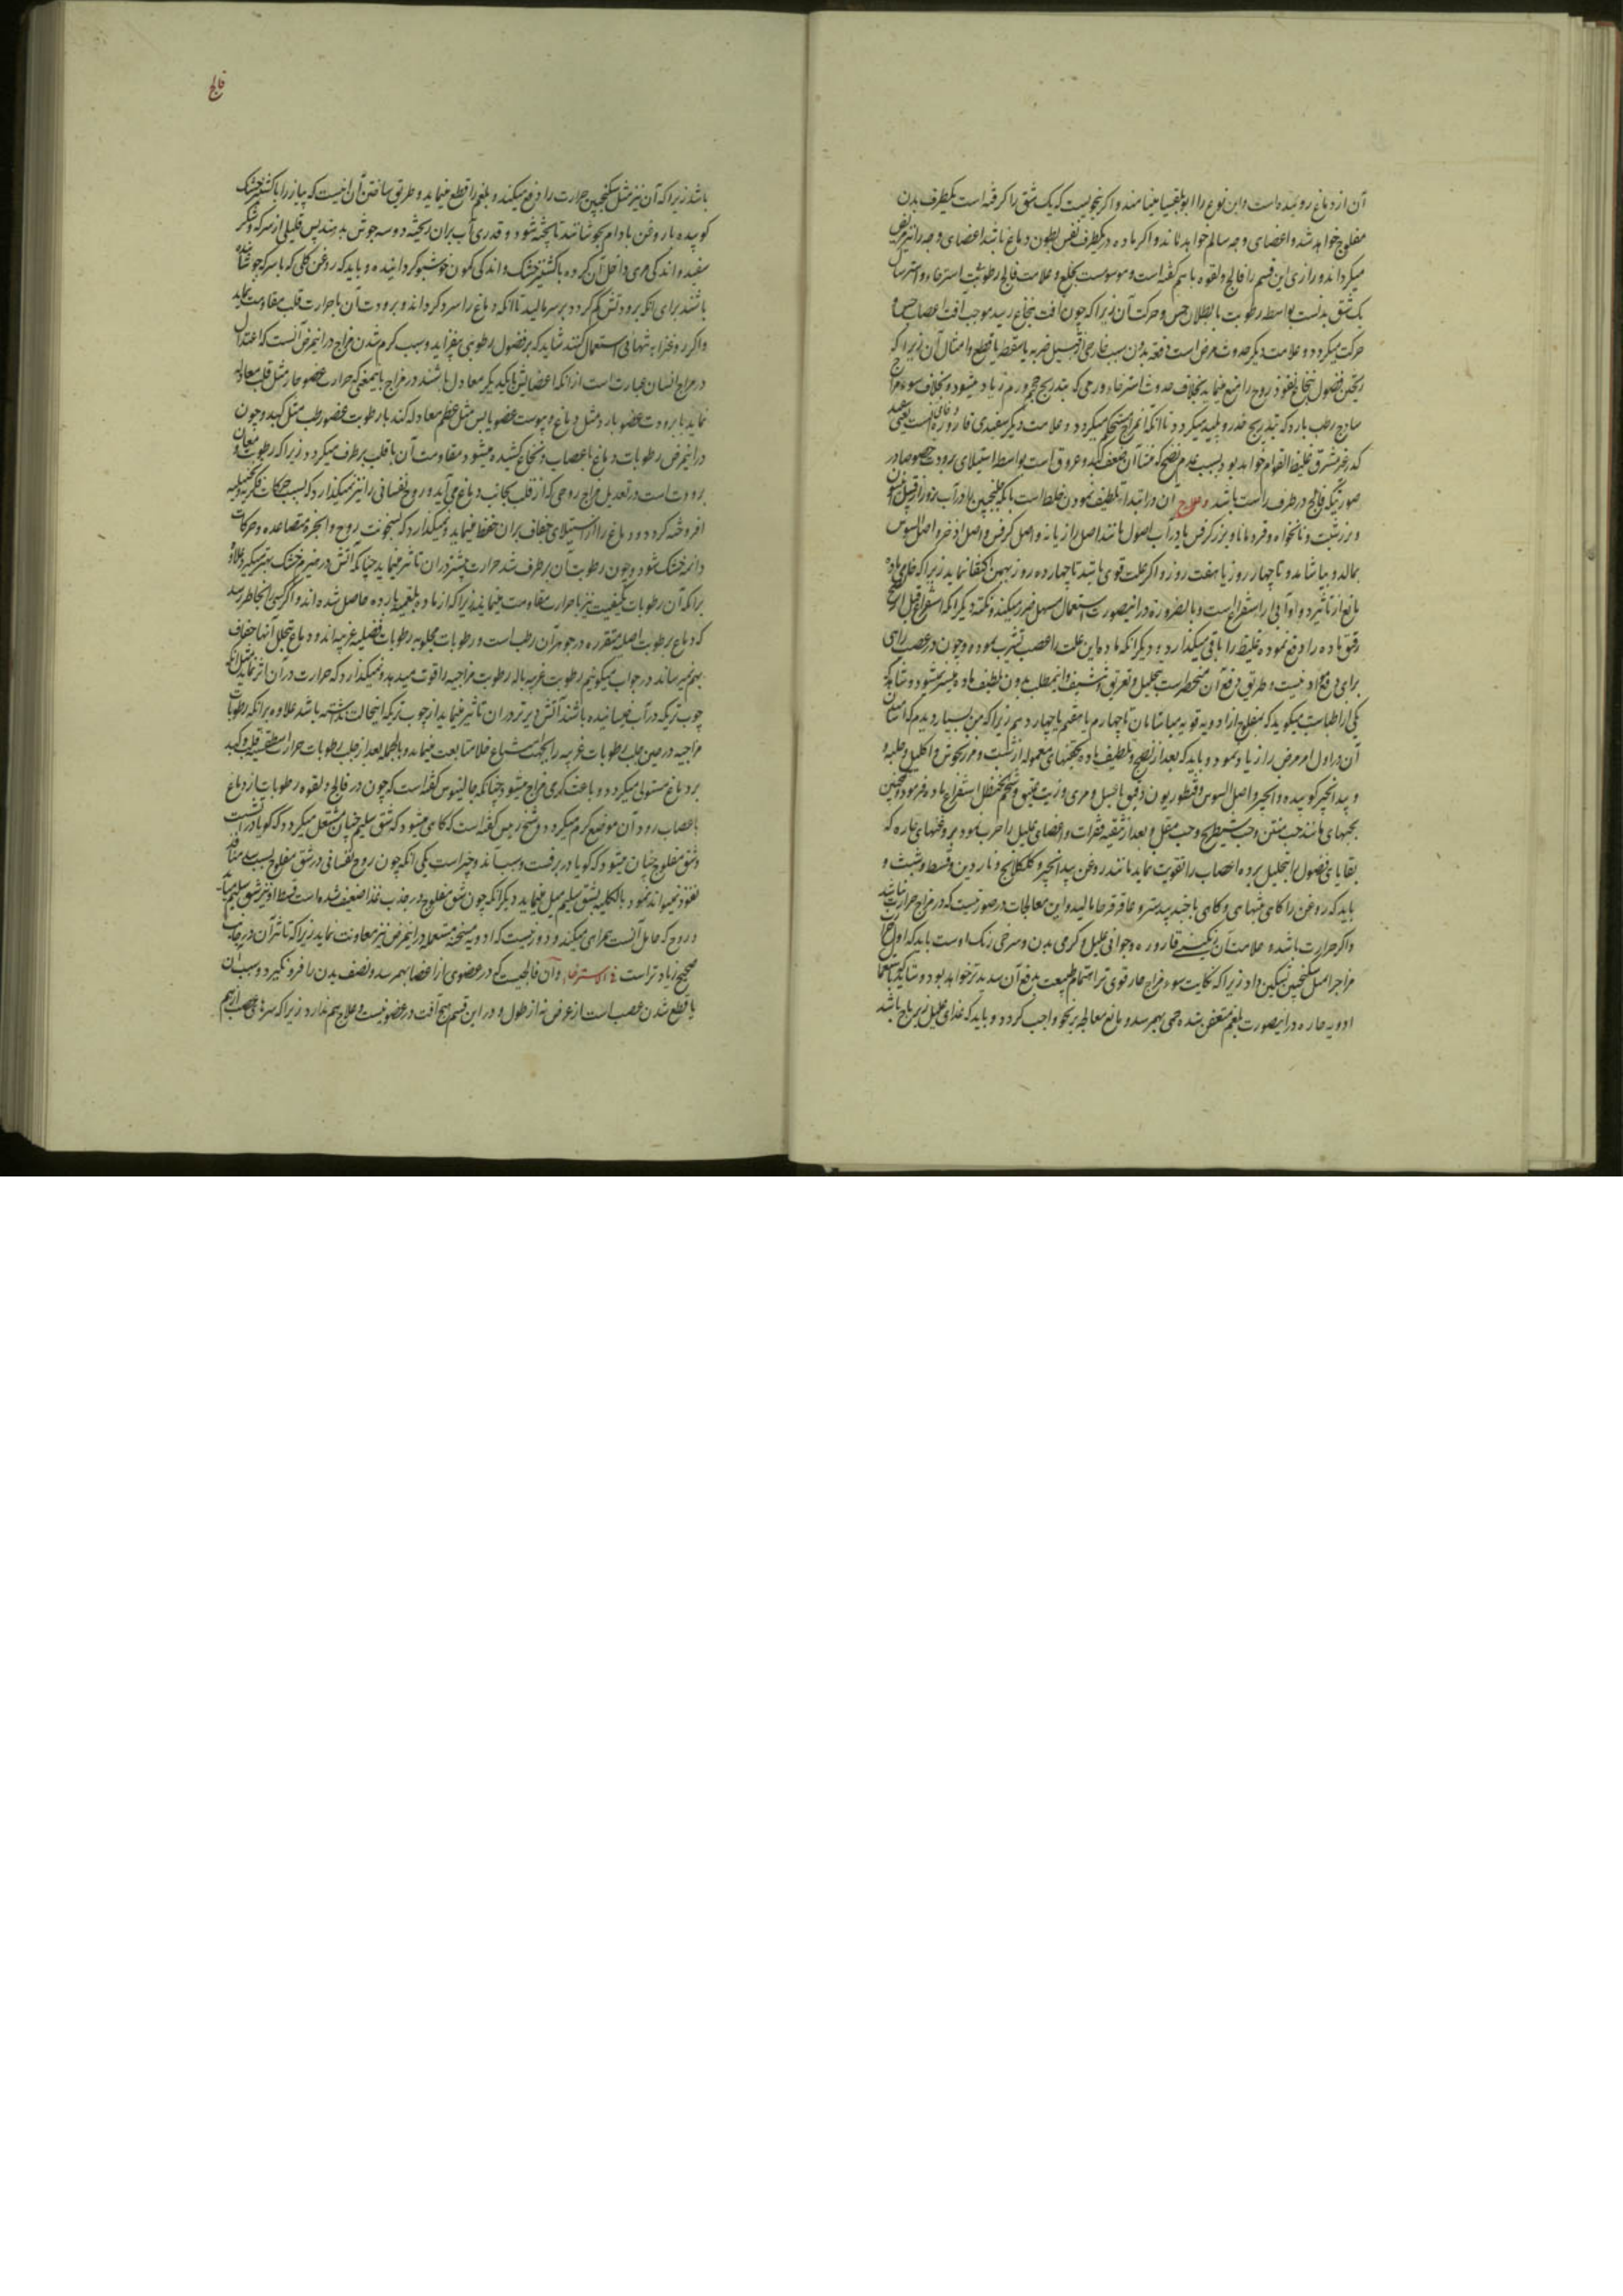 آن از دماغ روئیده است و این نوع را ابو بلقیسا مینامند و اگر بنحویست که یک شق را گرفته است یکطرف بدن
مفلوج خواهد شد و اعضای وجه سالم خواهد ماند و اگر ماده در یکطرف نفس بطون دماغ باشد اعضای وجه را نیز مریض
میگرداند و رازی این قسم را فالج و لقوه با هم گفته است و موسوست بخلع و علامت فالج رطوبتی استرخاء
یک شق بدنست بواسطه رطوبت با بطلان حس و حرکت آن زیرا که چون آفت بنخاع رسید موجب آفت اعصاب حس و
حرکت میگردد و علامت دیگر حدوث مرض است دفعة بدون سبب خارجی از قبیل ضربه یا سقطه یا قطع و امثال آن زیرا که
ریختن فضول بنخاع نفوذ روح را منع مینماید بخلاف حدوث استرخاء ورمی که بتدریج حجم ورم زیاد میشود و بخلاف سوء مزاج
ساذج رطب بارد که بتدریج خدر و پلید میگردد تا آنکه آن مزاج مستحکم میگردد و علامت دیگر سفیدی قاروره است یعنی
کدر غیر مشرق غلیظ القوام خواهد بود بسبب عدم نضج که منشأ آن ضعف کبد و عروق است بواسطه استیلای برودت خصوصا در
صورتیکه فالج در طرف راست باشد و علاج آن در ابتدا تلطیف نمودن خلط است باینکه جلنجبین را در آب بزور از قبیل انیسون
و بزر شبت و نانخواه و قردمانا و بزر کرفس یا در آب اصول مانند اصل رازیانه و اصل کرفس و اصل اذخر و اصل السوس
بمالد و بیاشامد و تا چهار روز یا هفت روز و اگر علت قوی باشد تا چهارده روز بهمین اکتفا نماید زیرا که
مانع از تأثیر دواوآبی از استفراغ است و بالضروره در اینصورت استعمال مسهل ضرر میکند و نکته دیگر آنکه استفراغ قبل از نضج
رقیق ماده را دفع نموده غلیظ را باقی میگذارد و دیگر آنکه ماده این علت را عصب تشرب نموده و چون در عصب راهی
برای دفع مواد نیست و طریق دفع آن منحصر است بتحلیل و تعریق و تنشیف و اینمطلب بدون تلطیف ماده میسر نمیشود و شاید که
یکی از اطبا میگوید که بمفلوج از ادویه قویه میاشامان تا چهارم یا هفتم یا چهاردهم زیرا که من بسیار دیدم که
آن در اول امر مرض را زیاد نمود و باید که بعد از نضج و تلطیف ماده بحقنهای معموله از شبت و مرزنجوش و اکلیل و حلبه و
و بیدانجیر کوبیده و انجیر و اصل السوس و قنطوریون دقیق با عسل و مری و زیت عتیق و شحم حنظل استفراغ ماده فرمود و همچنین
بحبهای مانند حب منتن و حب شیطرج و حب مقل و بعد از تنقیه فقرات و اعضای علیل را چرب نمود بروغنهای حاره که
بقایای فضول را بتحلیل برده اعصاب را تقویت نماید مانند روغن بیدانجیر و کلکلانج و ناردین و قسط و شبت و
باید که روغن را گاهی تنهایی و گاهی با جندبیدستر و عاقرقرحا بمالند و این معالجات در صورتیست که در مزاج حرارت نباشد
و اگر حرارت باشد و علامت آن رنگینی قاروره و جوانی علیل و گرمی بدن و سرخی رنگ اوست باید که اول
مزاج را مثل سکنجبین تسکین داد زیرا که نکایت سوء مزاج حار قوی‌تر اهتمام طبیعت بدفع آن شدیدتر خواهد بود و شاید که باستعمال
ادویه حاره در اینصورت بلغم متعفن شده حمی بهم رسد و مانع معالجه بر نحو واجب گردد و باید که غذای علیل زیرباج باشد
فالج
باشد زیرا که آن نیز مثل سکنجبین حرارت را دفع میکند و بلغم را قطع مینماید و طریق ساختن آن اینست که پیاز را با کشنیز خشک
کوبیده با روغن بادام بجوشانند تا پخته شود و قدری آب بر آن ریخته دو سه جوش بدهند پس قلیلی از سرکه و شکر
سفید و اندکی مری داخل آن کرده با کشنیز خشک و اندکی کمون خوشبو گردانیده و باید که روغن گلی که با سرکه جوشانیده
باشند برای آنکه برودتش کم گردد بر سر مالید تا آنکه دماغ را سرد گرداند و برودت آن با حرارت قلب مقاومت نماید
و اگر روغن را به تنهایی استعمال کنند شاید که بر فضول رطوبتی بیفزاید و سبب گرم شدن مزاج در اینمرض آنست که اعتدال
در مزاج انسان عبارت است از آنکه اعضایش با یکدیگر معادل باشند در مزاج باینمعنی که حرارت عضو حار مثل قلب معادله
نماید با برودت عضو بارد مثل دماغ و یبوست عضو یابس مثل عظم معادله کند با رطوبت عضو رطب مثل کبد و چون
در اینمرض رطوبات دماغ باعصاب و نخاع کشیده میشود مقاومت آن با قلب برطرف میگردد زیرا که رطوبت معاون
برودت است در تعدیل مزاج روحی که از قلب بجانب دماغ می‌آید و روح نفسانی را نیز نمیگذارد که بسبب حرکات فکریه تخیلیه
افروخته گردد و دماغ را از استیلای جفاف بر آن حفظ مینماید و نمیگذارد که بسخونت روح و ابخره متصاعده و حرکات
دائمه خشک شود و چون رطوبت آن برطرف شد حرارت بیشتر در آن تاثیر مینماید چنانکه آتش در هیزم خشک بهتر میگیرد علاوه
بر آنکه آن رطوبات بکیفیت نیز با حرارت مقاومت مینمایند زیرا که از ماده بلغمیه بارده حاصل شده‌اند و اگر کسی را بخاطر رسد
که دماغ برطوبت اصلیه متقرره در جوهر آن رطب است و رطوبات مجلوبه رطوبات فضلیه غریبه‌اند و دماغ بتحلل آنها جفاف
بهم نمیرساند در جواب میگوئیم رطوبت غریبه باله رطوبت مزاجیه را قوت میدهد و نمیگذارد که حرارت در آن اثر نماید مثل آنکه
چوب تریکه در آب خیسانیده باشند آتش دیرتر در آن تاثیر مینماید از چوب تریکه اینحالت نداشته باشد علاوه بر آنکه رطوبات
مزاجیه در حین جلب رطوبات غریبه را بجهت امتزاج خلا متابعت مینماید و بالجمله بعد از جلب رطوبات حرارت قلب و کبد
بر دماغ مستولی میگردد و باعث گرمی مزاج میشود چنانکه جالینوس گفته است که چون در فالج و لقوه رطوبات از دماغ
باعصاب رود آن موضع گرم میگردد و شیخ رئیس گفته است که گاهی میشود که شق سلیم چنان مشتعل میگردد که گویا در آتشست
و شق مفلوج چنان میشود که گویا در برفست و سبب آن دو چیز است یکی آنکه چون روح نفسانی در شق مفلوج بسبب سد منافذ
نفوذ نمیتواند نمود بالکلیه بشق سلیم میل مینماید دیگر آنکه چون شق مفلوج در جذب غذا ضعیف شده است
و روح که حامل آنست همراهی میکند و دور نیست که ادویه مسخنه مستعمله در اینمرض نیز معاونت نماید زیرا که تاثیر آن در جانب
صحیح زیادتر است فی الاسترخاء و آن فالجیست که در عضوی از اعضا بهم رسد و نصف بدن را فرو نگیرد و سبب آن
یا قطع شدن عصب است از عرض نه از طول و در این قسم هیچ آفت در عضو نیست و علاج هم ندارد زیرا که سرهای عصب از هم